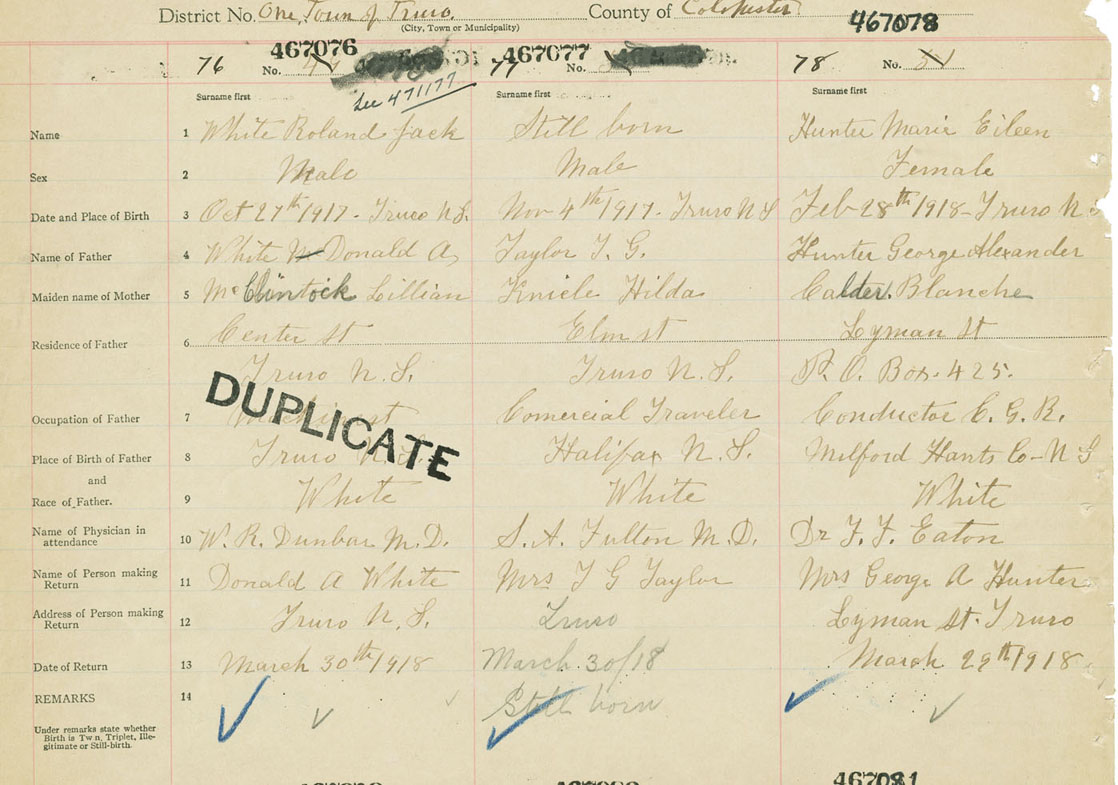 District No. One, Town of Truro. County of Colchester
(City, Town or Municipality)
467076 467077 467078
76 No. 77 No. 78 No.
See 471177
Surname first Surname first Surname first
Name 1 White Roland Jack Still born Hunter Marie Eileen
Sex 2 Male Male Female
Date and Place of Birth 3 Oct 27th 1917 - Truro N.S. Nov 4th 1917 - Truro N S Feb 28th 1918 - Truro N.
Name of Father 4 White Donald A. Taylor T. G. Hunter George Alexander
Maiden name of Mother 5 McClintock Lillian Hilda Calder Blanche
Residence of Father 6 Center St Elm st Lyman St
Truro N.S. Truro N.S. P. O. Box 425.
DUPLICATE
Occupation of Father 7 Machinist Comercial Traveler Conductor C. G. R.
Place of Birth of Father 8 Truro N.S. Halifax N.S. Milford Hants Co - N S
and
Race of Father. 9 White White White
Name of Physician in attendance 10 W. R. Dunbar M.D. S. A. Fulton M.D. Dr F. F. Eaton
Name of Person making Return 11 Donald A White Mrs T G Taylor Mrs George A Hunter
Address of Person making Return 12 Truro N.S. Truro Lyman St. Truro
Date of Return 13 March 30th 1918 March 30/18 March 29th 1918
REMARKS 14 Still born
Under remarks state whether
Birth is Twin, Triplet, Ille-
gitimate or Still-birth.
467081